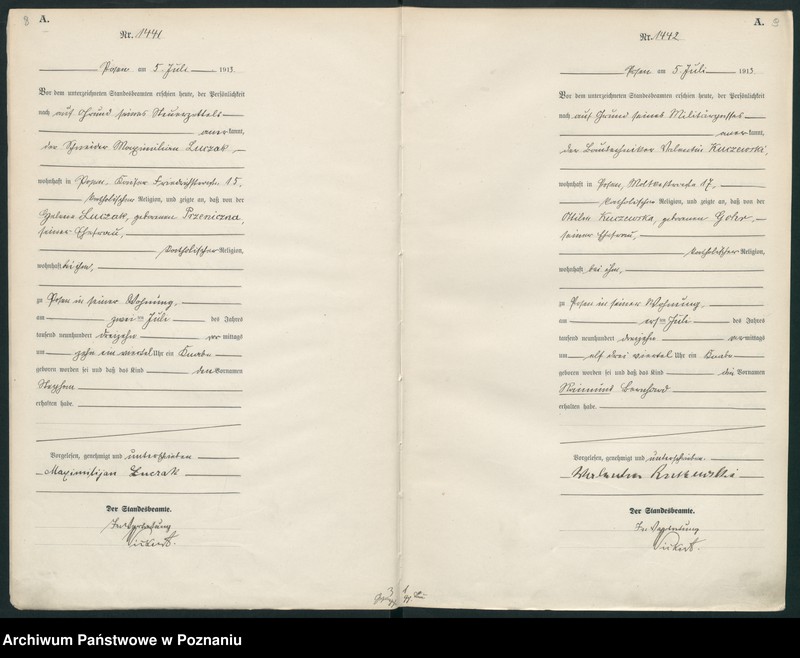 8 A.
Nr. 1441
Posen am 5. Juli 1913
Vor dem unterzeichneten Standesbeamten erschien heute, der Persönlichkeit
nach auf Grund seines Steuerzettels
anerkannt,
der Schneider Maximilian Luczak
wohnhaft in Posen, Kaiser Friedrichstraße 15,
katholischer Religion, und zeigte an, daß von der
Helene Luczak, geborenen Pszeniczna,
seiner Ehefrau,
katholischer Religion,
wohnhaft bei ihm,
zu Posen in seiner Wohnung
am zwei ten Juli des Jahres
tausend neunhundert dreizehn vor mittags
um zehn ein viertel Uhr ein Knabe
geboren worden sei und daß das Kind den Vornamen
Stephan
erhalten habe.
Vorgelesen, genehmigt und unterschrieben
Maximiljan Luczak
Der Standesbeamte.
In Vertretung
A.
Nr. 1442
Posen am 5. Juli 1913
Vor dem unterzeichneten Standesbeamten erschien heute, der Persönlichkeit
nach auf Grund seines Militärpasses
anerkannt,
der Bautechniker Valentin Kuczewski,
wohnhaft in Posen, Moltkestraße 17,
katholischer Religion, und zeigte an, daß von der
Kuczewska, geborenen Gohr,
seiner Ehefrau,
katholischer Religion,
wohnhaft bei ihm,
zu Posen in seiner Wohnung
am ersten Juli des Jahres
tausend neunhundert dreizehn vormittags
um elf drei viertel Uhr ein Knabe
geboren worden sei und daß das Kind die Vornamen
Raimund Bernhard
erhalten habe.
Vorgelesen, genehmigt und unterschrieben.
Walenty Kuczewski
Der Standesbeamte.
In Vertretung
Archiwum Państwowe w Poznaniu